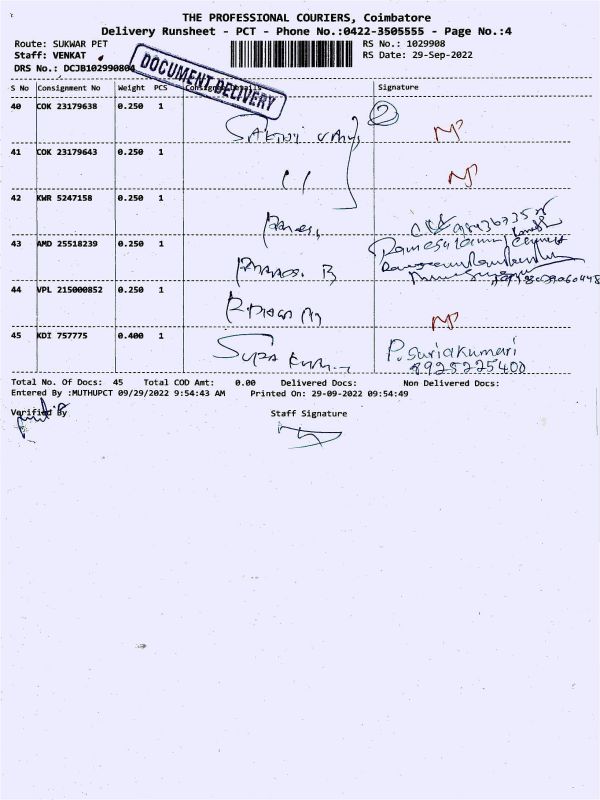 THE PROFESSIONAL COURIERS, Coimbatore
Delivery Runsheet - PCT - Phone No.:0422-3505555 - Page No.:4
Route: SUKWAR PET
RS No.: 1029908
Staff: VENKAT
RS Date: 29-Sep-2022
DRS No.: DCJB102990804
DOCUMENT DELIVERY
S No Consignment No Weight PCS Signature
40 COK 23179638 0.250 1
NP
41 COK 23179643 0.250 1 11
NP
42 KWR 5247158 0.250 1
43 AMD 25518239 0.250 1
44 VPL 215000852 0.250 1
NP
45 KDI 757775 0.400 1
P. Suriakumari
8925225400
Total No. Of Docs: 45 Total COD Amt: 0.00 Delivered Docs: Non Delivered Docs:
Entered By :MUTHUPCT 09/29/2022 9:54:43 AM Printed On: 29-09-2022 09:54:49
Verified By
Staff Signature